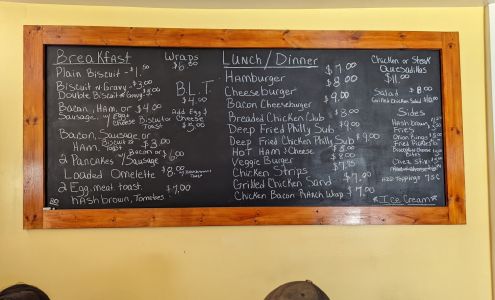 Breakfast
Plain Biscuit - $1.50
Biscuit w/ Gravy - $3.00
Double Biscuit w/ Gravy
Bacon, Ham, or $4.00
Sausage, w/ Eggs Cheese Biscuit or Toast
Bacon, Sausage or
Ham. Biscuit or Toast $3.00
2 Pancakes w/ Bacon or Sausage $6.00
Loaded Omelette $8.00
2 Egg, meat, toast, $7.00
hash brown, Tomatoes.
Wraps
$6.00
B.L.T.
$4.00
Add Egg &
Cheese
$5.00
Lunch/Dinner
Hamburger $7.00
Cheeseburger $8.00
Bacon Cheeseburger $9.00
Breaded Chicken Club $8.00
Deep Fried Philly Sub $9.00
Deep Fried Chicken Philly Sub $9.00
Hot Ham & Cheese
Veggie Burger
Chicken Strips
Grilled Chicken Sand $7.00
Chicken Bacon Ranch Wrap $7.00
Chicken or Steak
Quesadillas
$11.00
Salad $8.00
Grilled Chicken Salad
Sides
Hashbrown
Fries
Onion Rings
Fried Pickles
Broccoli Cheese
Bites
Cheese Sticks
Add Toppings 75¢
*Ice Cream*